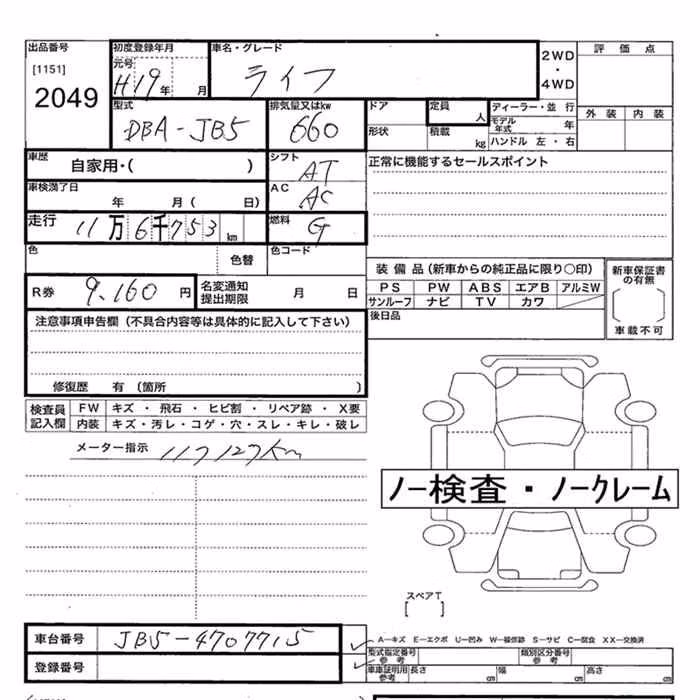 出品番号
[1151]
2049
初度登録年月
元号
H19年 月
車名・グレード
ライフ
2WD
・
4WD
評価点
外装 内装
型式
DBA-JB5
排気量又はkw
660
ドア
形状
定員
人
積載
kg
ディーラー・並行
モデル年式 年
ハンドル 左・右
車歴
自家用・( )
シフト
AT
正常に機能するセールスポイント
車検満了日
年 月( 日)
AC
AC
走行
11万6千753km
燃料
G
色
色替
色コード
R券 9,160円
名変通知
提出期限 月 日
装備品(新車からの純正品に限り○印)
PS PW ABS エアB アルミW
サンルーフ ナビ TV カワ
新車保証書
の有無
車載不可
後日品
注意事項申告欄(不具合内容等は具体的に記入して下さい)
修復歴 有(箇所 )
検査員
記入欄
FW キズ・飛石・ヒビ割・リペア跡・X要
内装 キズ・汚レ・コゲ・穴・スレ・キレ・破レ
メーター指示 117127km
ノー検査・ノークレーム
スペアT
[ ]
車台番号 JB5-4707715
登録番号
A―キズ E―エクボ U―凹み W―補修跡 S―サビ C―腐食 XX―交換済
型式指定番号
参考
類別区分番号
参考
車庫証明用
参考
長さ cm 幅 cm 高さ cm